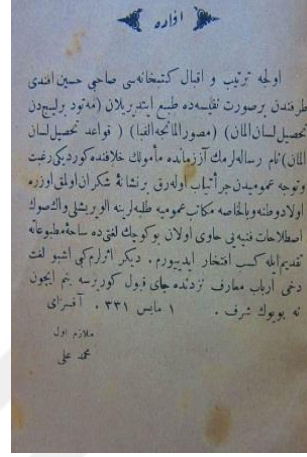 افاده
اولجه ترتیب و اقبال کتبخانه‌سی صاحبی حسین افندی
طرفندن برصورت نفیسه‌ده طبع ایتدیریلان (مه‌تود برلیچ‌دن
تحصیل لسان آلمان) (مصور آلمانجه الفبا) (قواعد تحصیل لسان
آلمان) نام رساله‌لرمك آز زمانده مأمولك خلافنده کوردیکی رغبت
وتوجه عمومیدن جرأتیاب اوله‌رق برنشانهٔ شکران اولمق اوزره
اولاد وطنه وبالخاصه مکاتب عمومیه طلبه‌لرینه الویریشلی واك صوك
اصطلاحات فنیه‌یی حاوی اولان بوکوچك لغتی‌ده ساحهٔ مطبوعاته
تقدیم ایله کسب افتخار ایدییورم. دیکر اثرلرم کبی اشبو لغت
دخی ارباب معارف نزدنده جای قبول کوررسه بنم ایچون
نه بویوك شرف. ١ مایس ٣٣١. آقسرای
ملازم اول
محمد علی